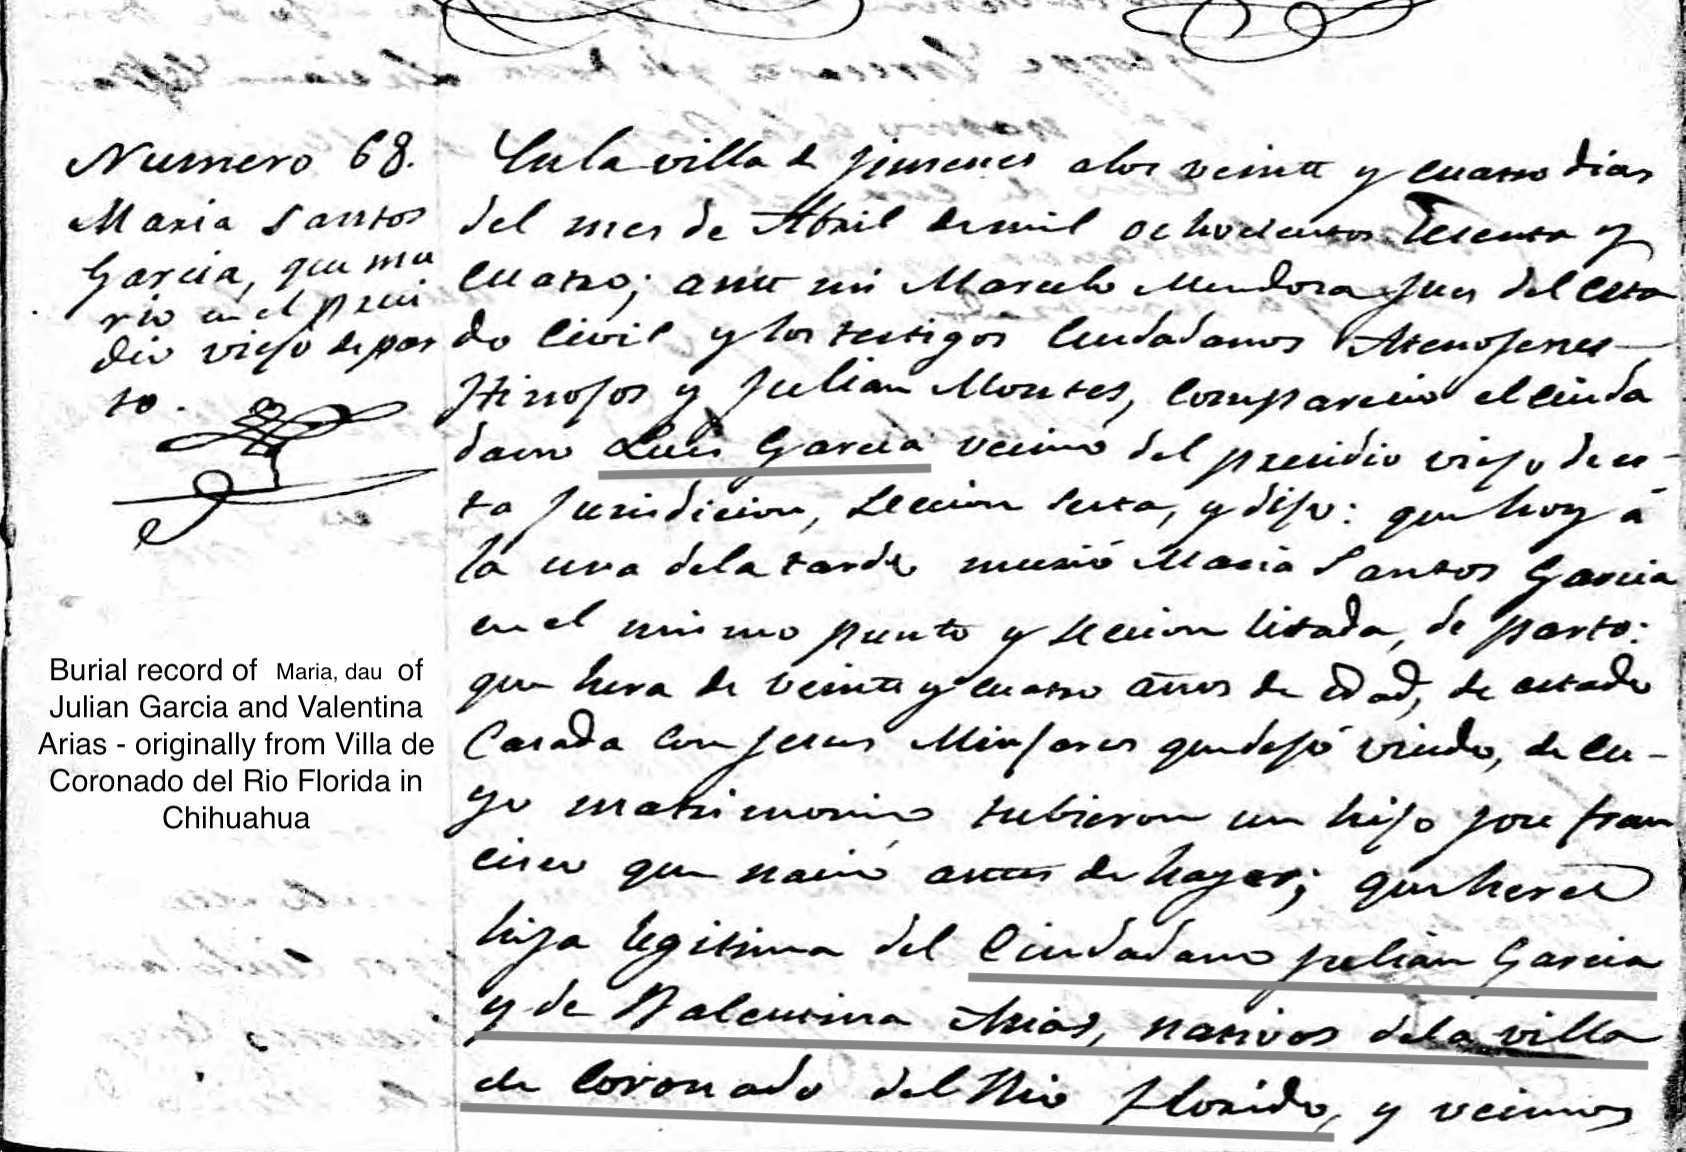 Numero 68.
Maria Santos
Garcia, que mu
rio en el presi
dio viejo de par
to.
En la villa de Jimenes a los veinte y cuatro dias
del mes de Abril de mil ochocientos sesenta y
cuatro; ante mi Marcelo Mendoza Jues del esta
do Civil y los testigos Ciudadanos Atenojenes
Hinojos y Julian Montes, comparecio el ciuda
dano Luis Garcia vecino del presidio viejo de es-
ta Jurisdicion, Seccion Sesta, y dijo: que hoy á
la una de la tarde murió Maria Santos Garcia
en el mismo punto y seccion citada, de parto:
que hera de veinte y cuatro años de edad, de estado
Casada con Jesus Minjares que dejó viudo, de cu-
yo matrimonio tubieron un hijo Jose Fran
cisco que nació antes de hayer; que hera
hija legitima del Ciudadano Julian Garcia
y de Balentina Arias, nativos de la villa
de Coronado del Rio Florido, y vecinos
Burial record of Maria, dau of
Julian Garcia and Valentina
Arias - originally from Villa de
Coronado del Rio Florida in
Chihuahua